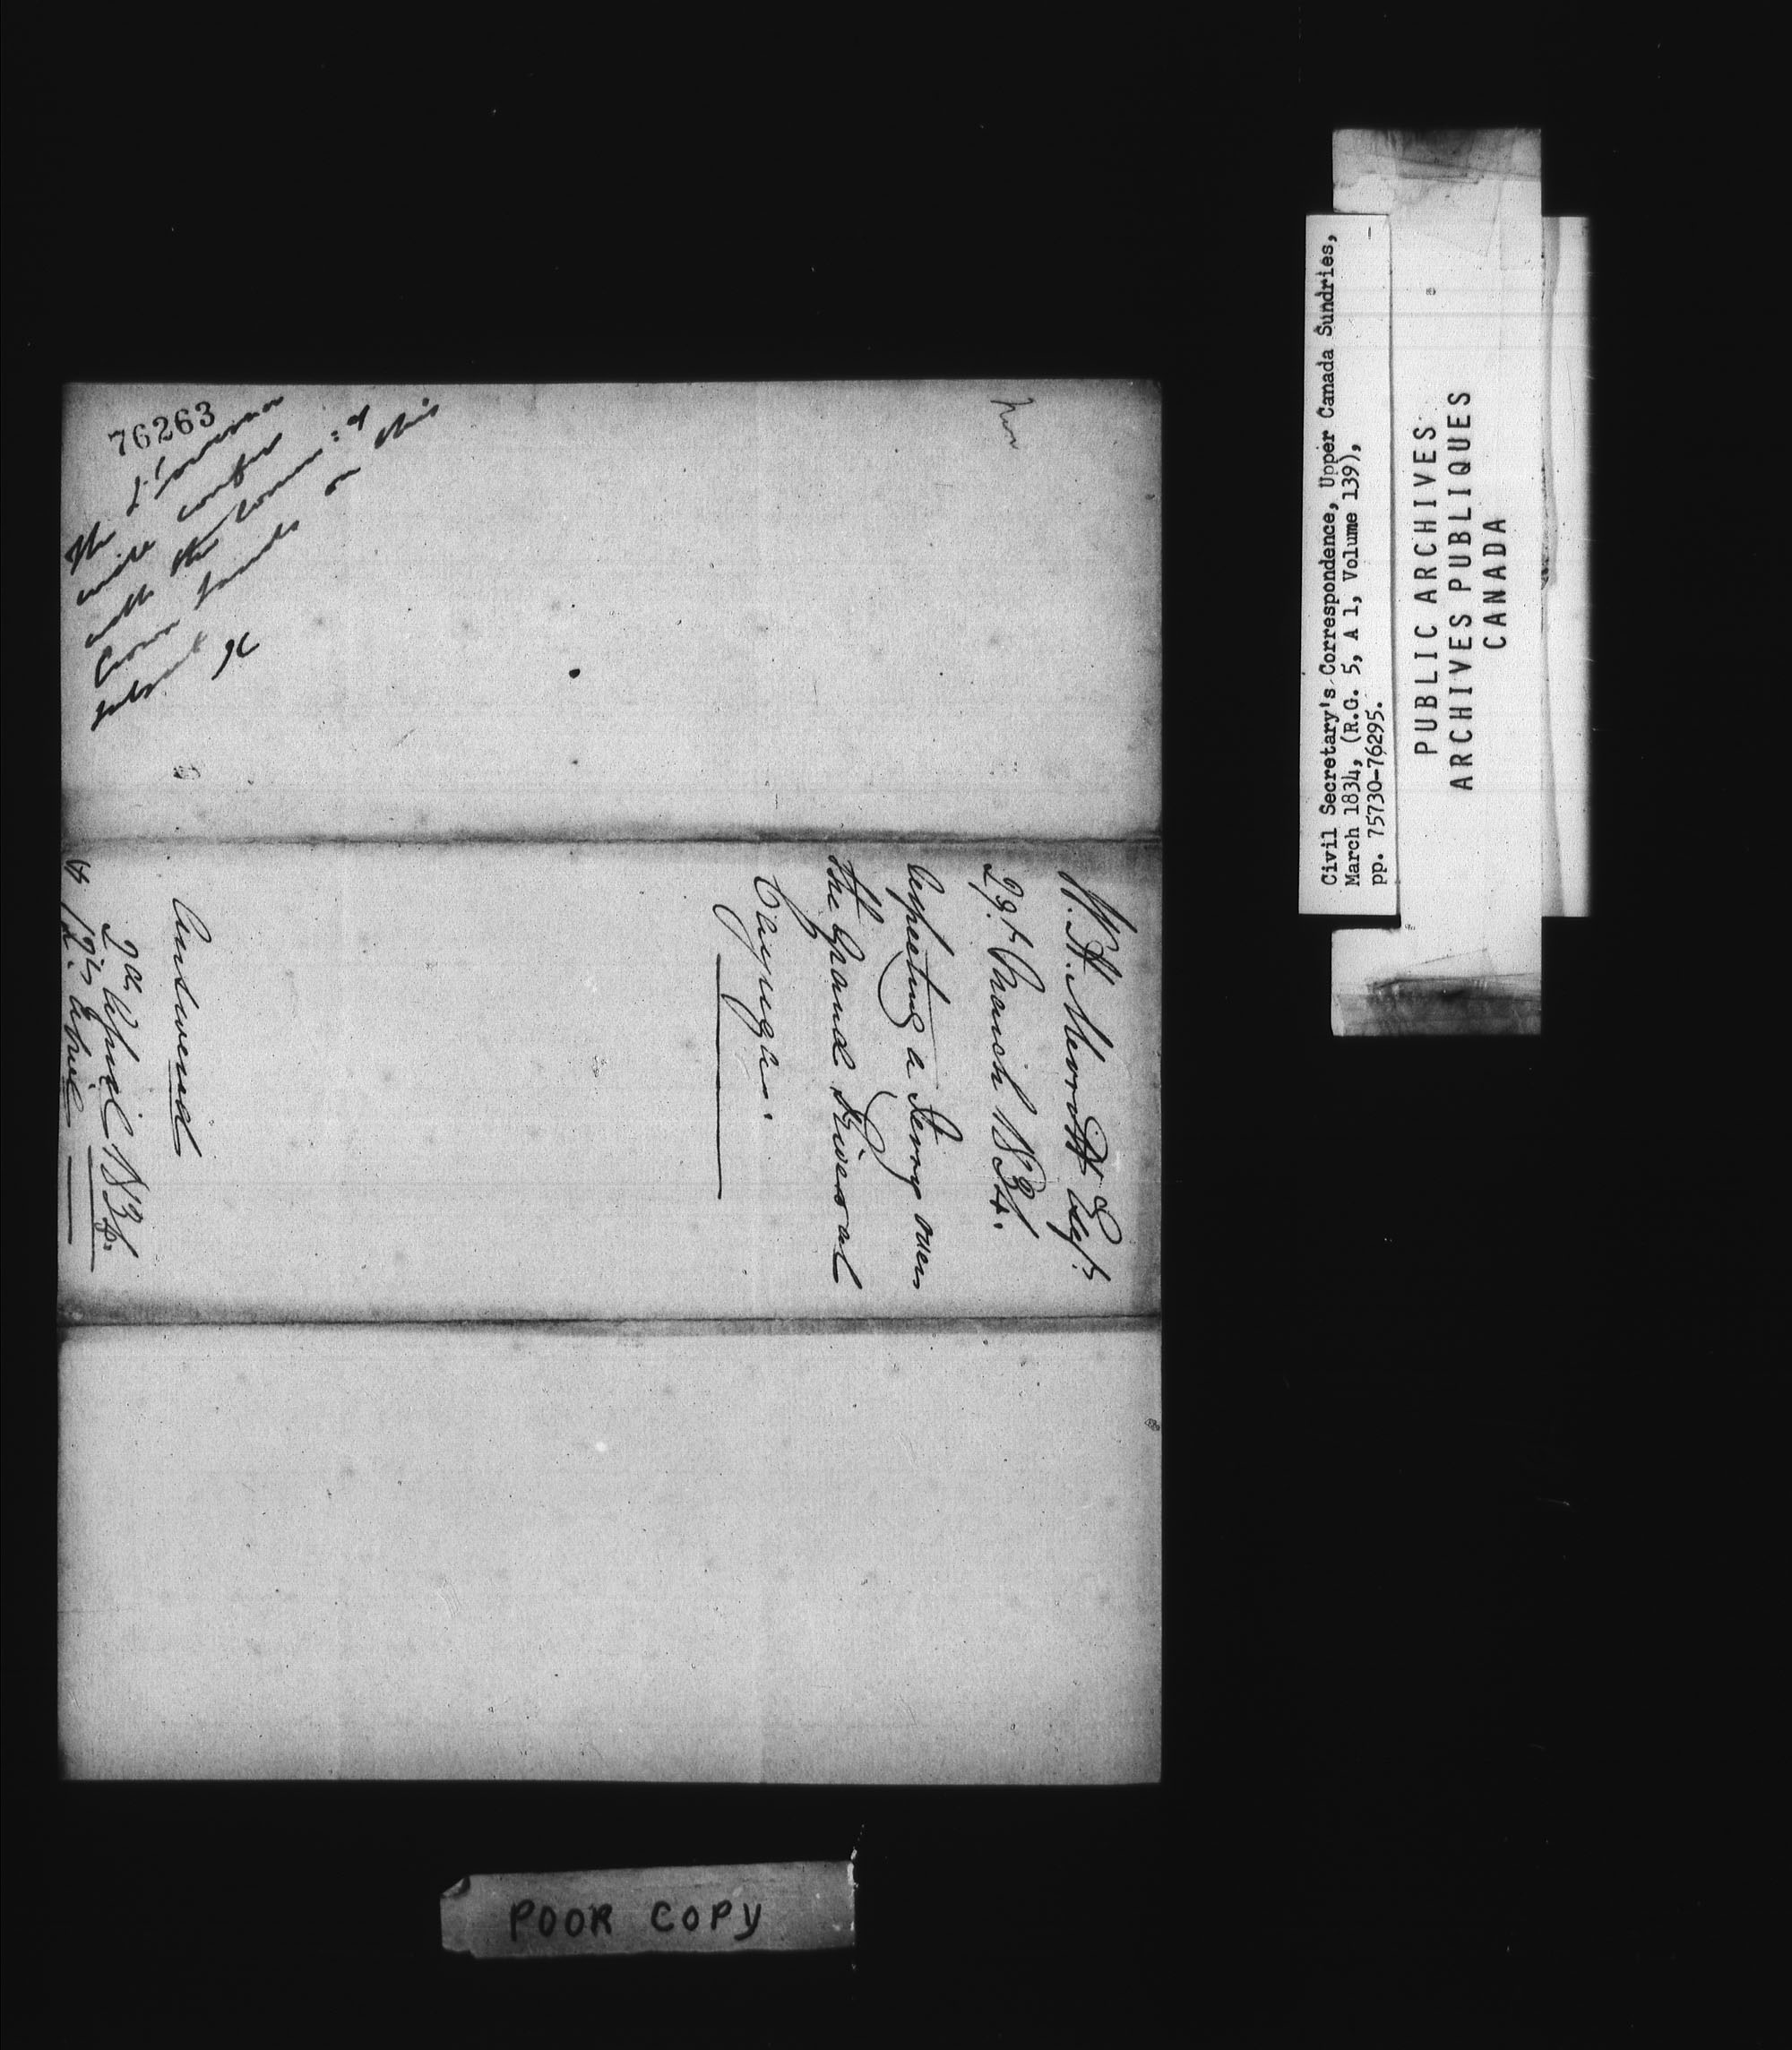 76263
The Lt Governor
will confer
with the Commr: of
Crown Lands on this
subject
W. H. Merritt Esqr.
29th March 1834.
respecting a Ferry over
the Grand River at
Cayuga.
Answered
2nd April 1834.
& 12th April
Civil Secretary's Correspondence, Upper Canada Sundries,
March 1834, (R.G. 5, A 1, Volume 139),
pp. 75730-76295.
PUBLIC ARCHIVES
ARCHIVES PUBLIQUES
CANADA
POOR COPY